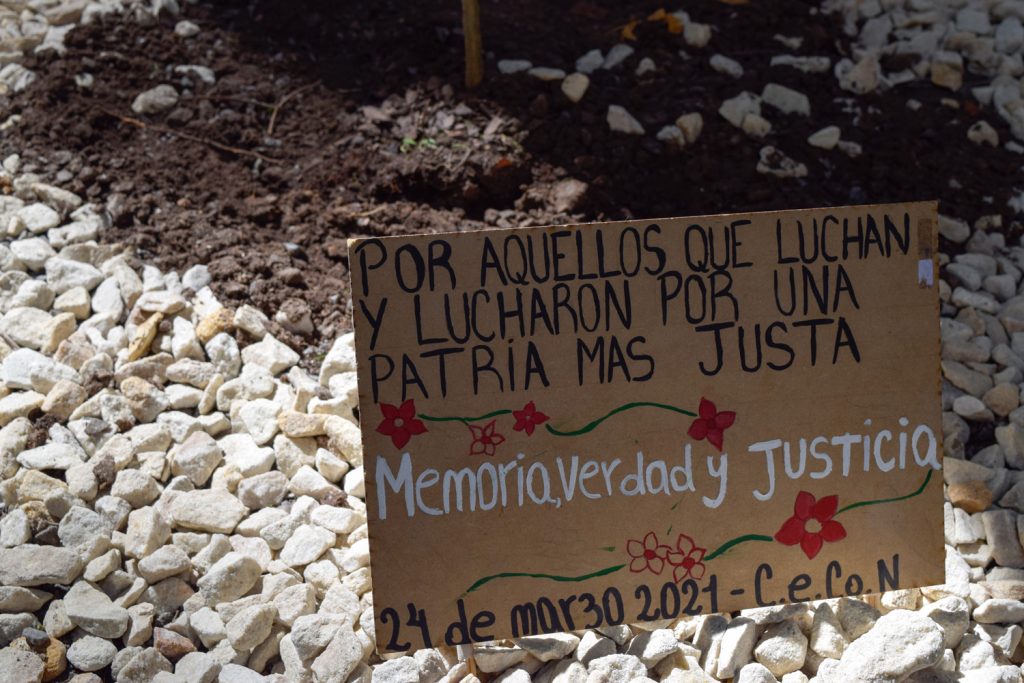 POR AQUELLOS QUE LUCHAN
Y LUCHARON POR UNA
PATRIA MAS JUSTA
Memoria, Verdad y JUSTICIA
24 de mar3o 2021 - C.e.Co.N